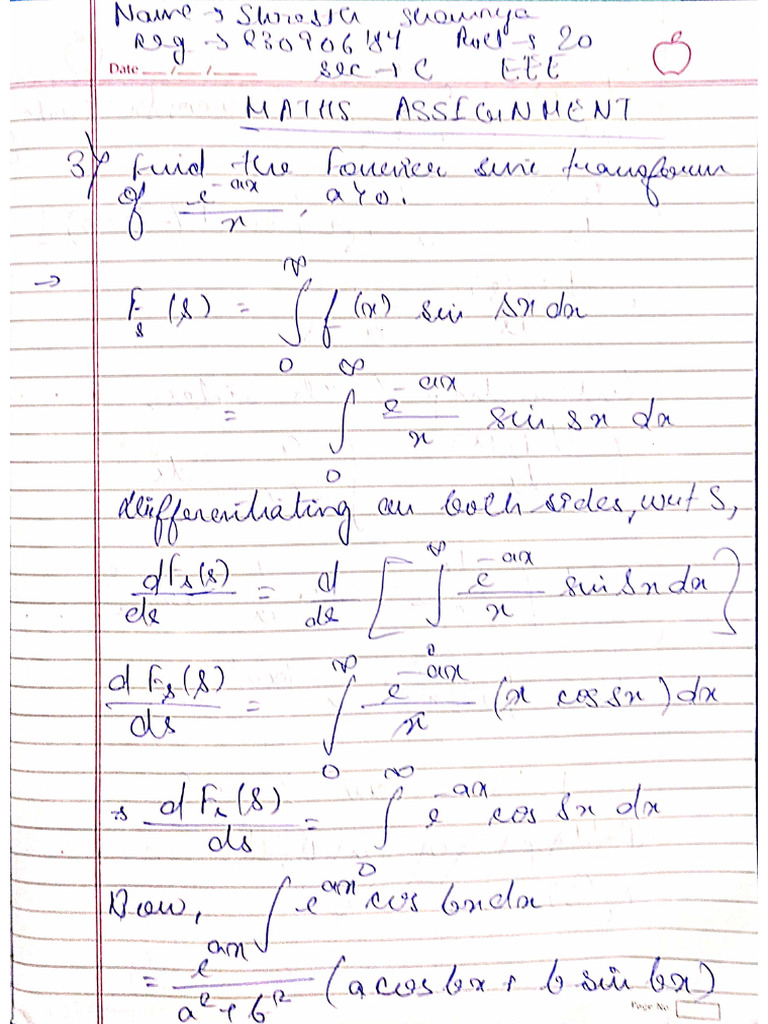 Name → Shressta
Reg → 230906184 Roll → 20
Date __/__/__ sec → C EEE
MATHS ASSIGNMENT
3) Find the Fourier sine transform
of e^{-ax}/x, a>0.
→ F_s(s) = ∫_0^∞ f(x) sin sx dx
= ∫_0^∞ e^{-ax}/x sin sx dx
differentiating on both sides, wrt S,
dF_s(s)/ds = d/ds [∫_0^∞ e^{-ax}/x sin sx dx]
dF_s(s)/ds = ∫_0^∞ e^{-ax}/x (x cos sx) dx
→ dF_s(s)/ds = ∫_0^∞ e^{-ax} cos sx dx
Now, ∫ e^{ax} cos bx dx
= e^{ax}/(a²+b²) (a cos bx + b sin bx)
Page No